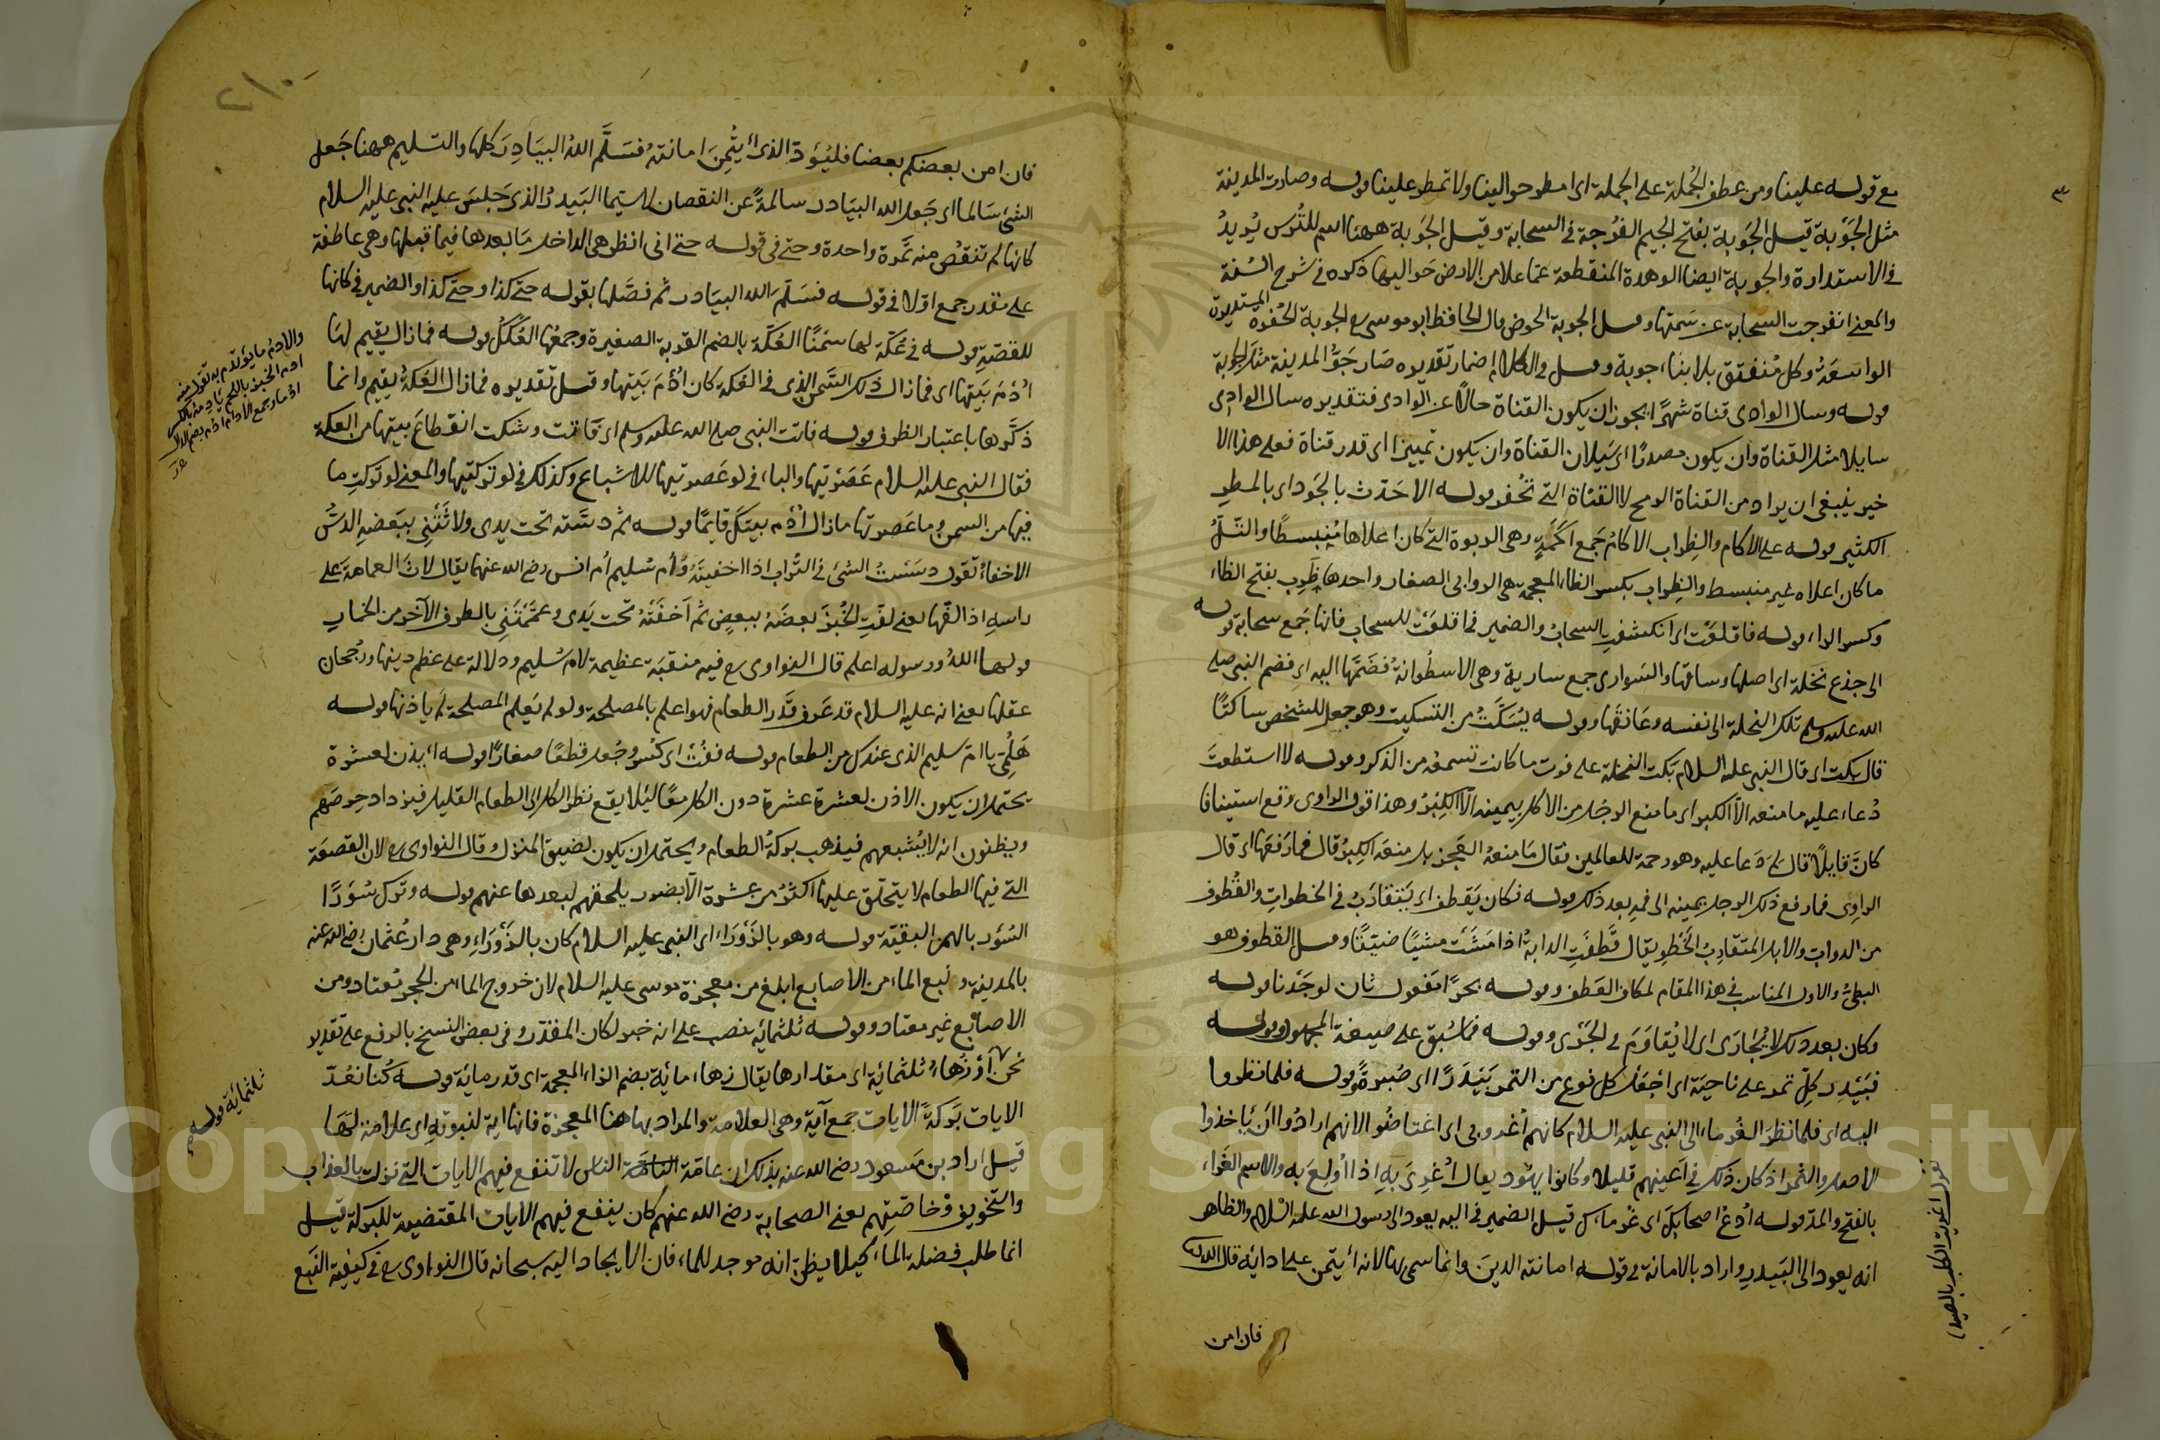 مع قوله علينا ومن عطف الجملة على الجملة اى امطر حوالينا ولا تمطر علينا قوله وصارت المدينة
مثل الجَوْبة قيل الجَوبة بفتح الجيم الفُرجة فى السحابة وقيل الجَوبة ههنا اسم للتُرس يُريدُ
فى الاستدارة والجوبة ايضا الوهدة المنقطعة عما علا من الارض حَواليها ذكره فى شرح السُنة
والمعنى انفرجت السحابة عن سَمتها وقيل الجوبة الحوض قال الحافظ ابو موسى رح الجوبة الحُفرة المستديرة
الواسعَةُ وكل مُنفَتِق بلا بنَاء جوبة وقيل فى الكلام اضمار تقديره صَار جَوُّ المدينة مثل الجوبة
قوله وسال الوادى قناة شهرًا يجوز ان يكون القناة حالًا عن الوادى فتقديره سال الوادى
سايلا مثل القناة وان يكون مصدرًا اى سَيلان القناة وان يكون تمييزا اى قدر قناة فعلى هذا الا
خير ينبغى ان يراد من القناة الرمح لا القناة التى تُحْفر قوله الا حَدّث بالجَود اى بالمطرِ
الكثير قوله على الاكام والظِراب الاكامُ جَمع اَكَمَةٍ وهى الربوة التى كان اعلاها مُنبسطًا والتَلُّ
ما كان اعلاه غير منبسط والظِراب بكسر الظاء المعجمة هى الروابى الصغار واحدها ظَرِب بفتح الظاء
وكسر الراء قوله فاقلعَت اى انكشفت السحابُ والضمير فى اقلعَت للسحاب فانها جَمع سحابة قوله
الى جذع نَخلة اى اصلها وساقها والسَوارى جمع سارية وهى الاسطُوانةُ فضَمَّها اليه اى فضم النبى صلى
الله عليه وسلم تلك النخلة الى نفسه وعَانقَها وقوله يُسَكَّتُ من التسكيت وهو جعل للشخص ساكتًا
قال بكت اى قال النبى عليه السلام بَكت النخلة على فوت ما كانت تسمعُه من الذكر وقوله لا استطعتَ
دُعاء عليه ما منعه الّا الكبر اى ما منع الرجل من الاكل بيمينه الّا الكِبْرُ وهذا قول الراوى وقع استينافا
كانَّ قايلًا قال لِمَ دَعا عليه وهو رحمة للعالمين فقال مَا منعهُ العَجز بل منعَه الكِبرُ قال فما رفعَها اى قال
الراوى فما رفع ذلك الرجل يمينه الى فمه بعد ذلك قوله فكان يَقطف اى يَتقارَبُ فى الخطوات والقُطوف
من الدواب والابل المتقاربُ الخَطْو يقال قَطَفَت الدابةُ اذا مَشَت مشيًا ضيّقًا وقيل القطوف هو
البطئُ والاول المناسب فى هذا المقام لمكان القَطف وقوله بحرًا مَفعول ثان لوجَدنا قوله
وكان بعد ذلك لا يُجَارَى اى لا يُقاوَمَ فى الجَرْى وقوله فما سُبق على صيغة المجهول وقوله
فبَيْدِر كلَّ تمر على ناحيَة اى اجعَلْ كل نوع من التمر بَيْدَرًا اى صُبرةً وقوله فلما نظروا
اليه اى فلما نظرَ الغُرماء الى النبى عليه السلام كانهم اُغروا بى اى اغتاضُوا لانهم ارادُوا ان يَاخذوا
الاصل والثمر اذ كان ذلك فى اَعينهم قليلا وكانوا يهُود يقال اُغرِىَ بهِ اذا اُولِعَ بَه والاسم الغَراء
بالفتح والمدّ قوله اُدعُ اصحابَك اى غُرماءَك قيل الضمير فى اليه يعود الى رسول الله عليه السلام والظاهر
انه يعود الى البَيدر واراد بالامانة فى قوله امانته الدينَ وانما سمى بها لانه أيتمن على ادايه قال الله تعالى
فان امن
يقول اغريت الكلب بالصيد
فان امن بعضكم بعضا فليُؤدِّ الذى اؤتُمِنَ امانتهُ فسَلَّم اللهُ البيَادِرَ كلها والتسليم ههنا جَعل
الشئ سَالما اى جَعل الله البيَادر سالمةً عن النقصان لا سيّما البَيدرُ الذى جَلسَ عليه النبى عليه السلام
كانها لم تنقُص منه تَمرة واحدة وحتى فى قوله حتى انى انظر هى الداخل مَا بعدها فيما قبلها وهى عاطفة
على مقدر جمع اوّلا فى قوله فسَلّمَ الله البيَادر ثم فصّلها بقوله حتى كذا وحتى كذا والضمير فى كانها
للقصّةِ قوله فى عُكّة لها سَمنًا العُكّة بالضم القربة الصغيرة وجمعُها العُكَكُ قوله فما زال يقيم لهَا
اُدْمَ بَيتها اى فما زال ذلك السَّمن الذى فى العكة كان اُدْمَ بَيتها وقيل تقديره فما زال العُكةُ يقيم وانما
ذكّرها باعتبار الظرف قوله فاتت النبى صلى الله عليه وسلم اى فَاتت وشكت انقطاعَ بيتها من العكة
فقال النبى عليه السلام عَصَرتِيها والياء فى لو عَصرتيها للاشباع وكذلك فى لو تركتيها والمعنى لو تركتِ ما
فيها من السمن وما عَصرتها ما زال اُدْم بيتكِ قايمًا قوله ثم دسَّته تحت يدى ولاثَتْنِى ببَعضهِ الدسُّ
الاخفاءُ تقول دسَستُ الشئ فى التراب اذا اخفيتَهُ وأم سُليم اُم انس رضى الله عنهما يقال لاثَ العمامة على
راسهِ اذا لفّها يعنى لفّتِ الخُبْزَ بعضَهُ ببعضٍ ثم اَخفَتْهُ تحت يَدى وعمَّمَتْنِى بالطرف الآخر من الخمار
قولها اللهُ ورسوله اعلم قال النواوى رح فيه منقبَة عظيمة لام سُليم ودلالة على عظم دينها ورُجحان
عقلها يعنى انه عليه السلام قد عَرف قَدر الطعام فهو اعلم بالمصلحة ولو لم يَعلم المصلحة لَم ياذنها قوله
هَلُمّى يا امّ سليم الذى عندك من الطعام قوله ففُتَّ اى كُسر وجُعل قطعًا صغارًا قوله ايذن لعشرة
يحتمل ان يكون الاذن لعشرة عشرة دون الكل معًا ليلا يقع نظر الكل الى الطعام القليل فيزداد حرصَهم
ويظنون انه لا يُشبعهم فيذهب بركةُ الطعام ويحتمل ان يكون لضيق المنزل وقال النواوى رح لان القصعَة
التى فيها الطعام لا يتحلّق عليها اكثرُ من عشرة الّا بضرر يلحقهم لبعدها عنهم قوله وتَرك سُؤرًا
السُؤر بالهمز البقيّة قوله وهو بالزَّوْرَاء اى النبى عليه السلام كان بالزَوْرَاءِ وهى دار عُثمان رضى الله عنه
بالمدينة ونَبع الماء من الاصابع ابلغ من معجزة موسى عليه السلام لان خروج الماء من الحجر مُعتاد ومن
الاصابع غير معتاد وقوله ثلثمائِة نصب على انه خبر لكان المقدّر وفى بعض النسخ بالرفع على تقدير
نحن اَوْ زُهاءُ ثلثمائة اى مقدارها يقال زهاء مائة بضم الزاء المعجمة اى قدر مائة قوله كُنا نَعُدّ
الايات بَرَكةً الايات جمع آية وهى العلامة والمراد بها ههنا المعجزة فانها اية لنبوته اى علامة لهَا
قيل اراد بن مَسعود رضى الله عنه بذلك ان عامّة الناس لا تنفع فيهم الايات التى نزلت بالعذاب
والتخويف وخاصّتِهم يعنى الصحابة رضى الله عنهم كان ينفع فيهم الايات المقتضية للبركة قيل
انما طلب فضلة الماء كيلا يظن انه موجد للماء فان الايجاد اليه سبحانه قال النواوى رح فى كيفية النَبع
والادمُ ما يؤتدَم به تقول منه
ادم الخبز باللحم يادمه بالكسر
ادما وجمع الادام ادم بضم الدال
ثلثمائة قوله